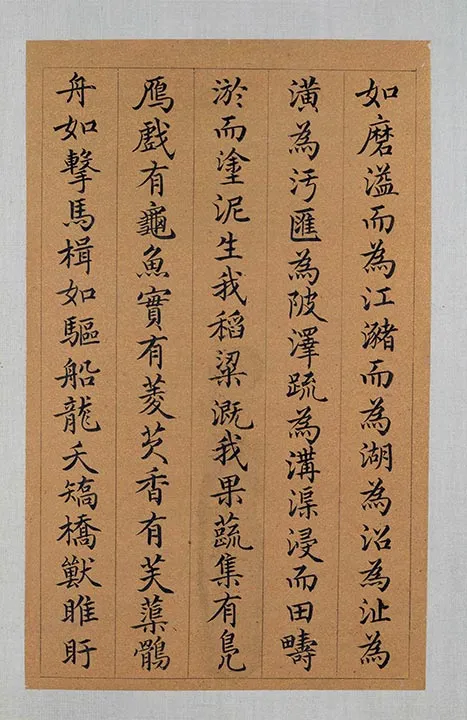 如磨溢而為江瀦而為湖為沼為沚為
潢為汚匯為陂澤疏為溝渠浸而田疇
淤而塗泥生我稻粱溉我果蔬集有鳧
鴈戲有龜魚實有菱芡香有芙蕖鶻
舟如擊馬楫如驅船龍夭矯橋獸睢盱